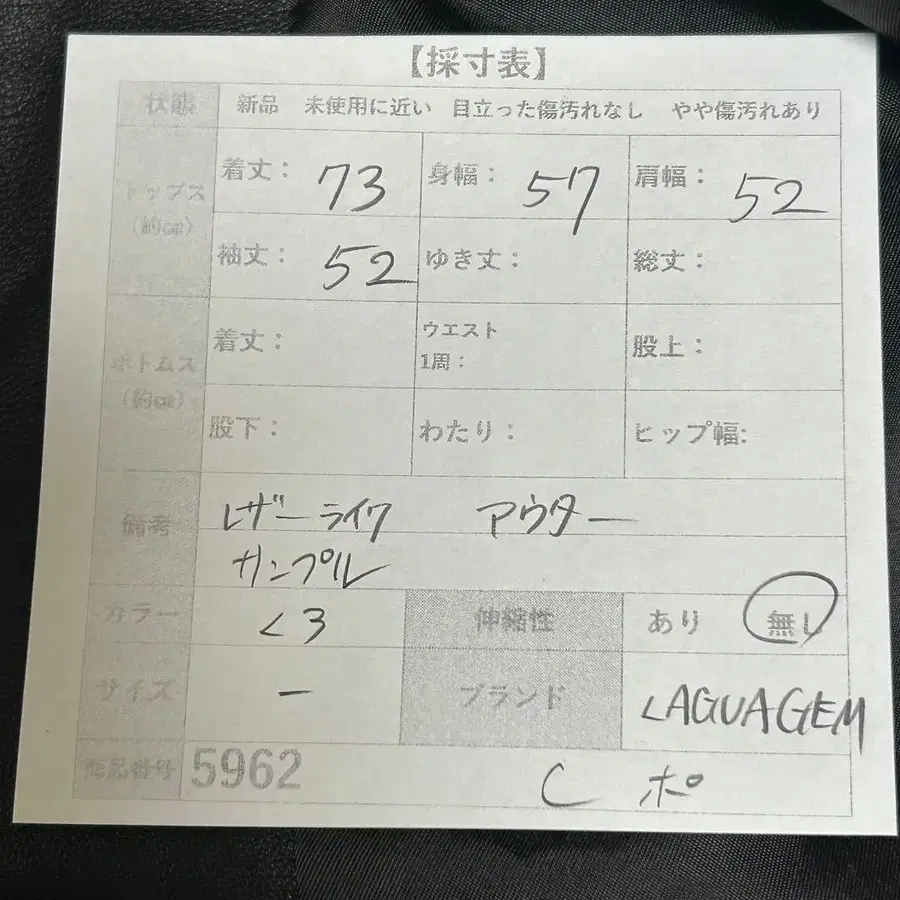 【採寸表】
状態 新品 未使用に近い 目立った傷汚れなし やや傷汚れあり
トップス (約cm) 着丈: 73 身幅: 57 肩幅: 52
袖丈: 52 ゆき丈: 総丈:
ボトムス (約cm) 着丈: ウエスト 1周: 股上:
股下: わたり: ヒップ幅:
備考 レザーライク アウター
サンプル
カラー くろ 伸縮性 あり 無し
サイズ ー ブランド LAGUAGEM
商品番号 5962 C ポ